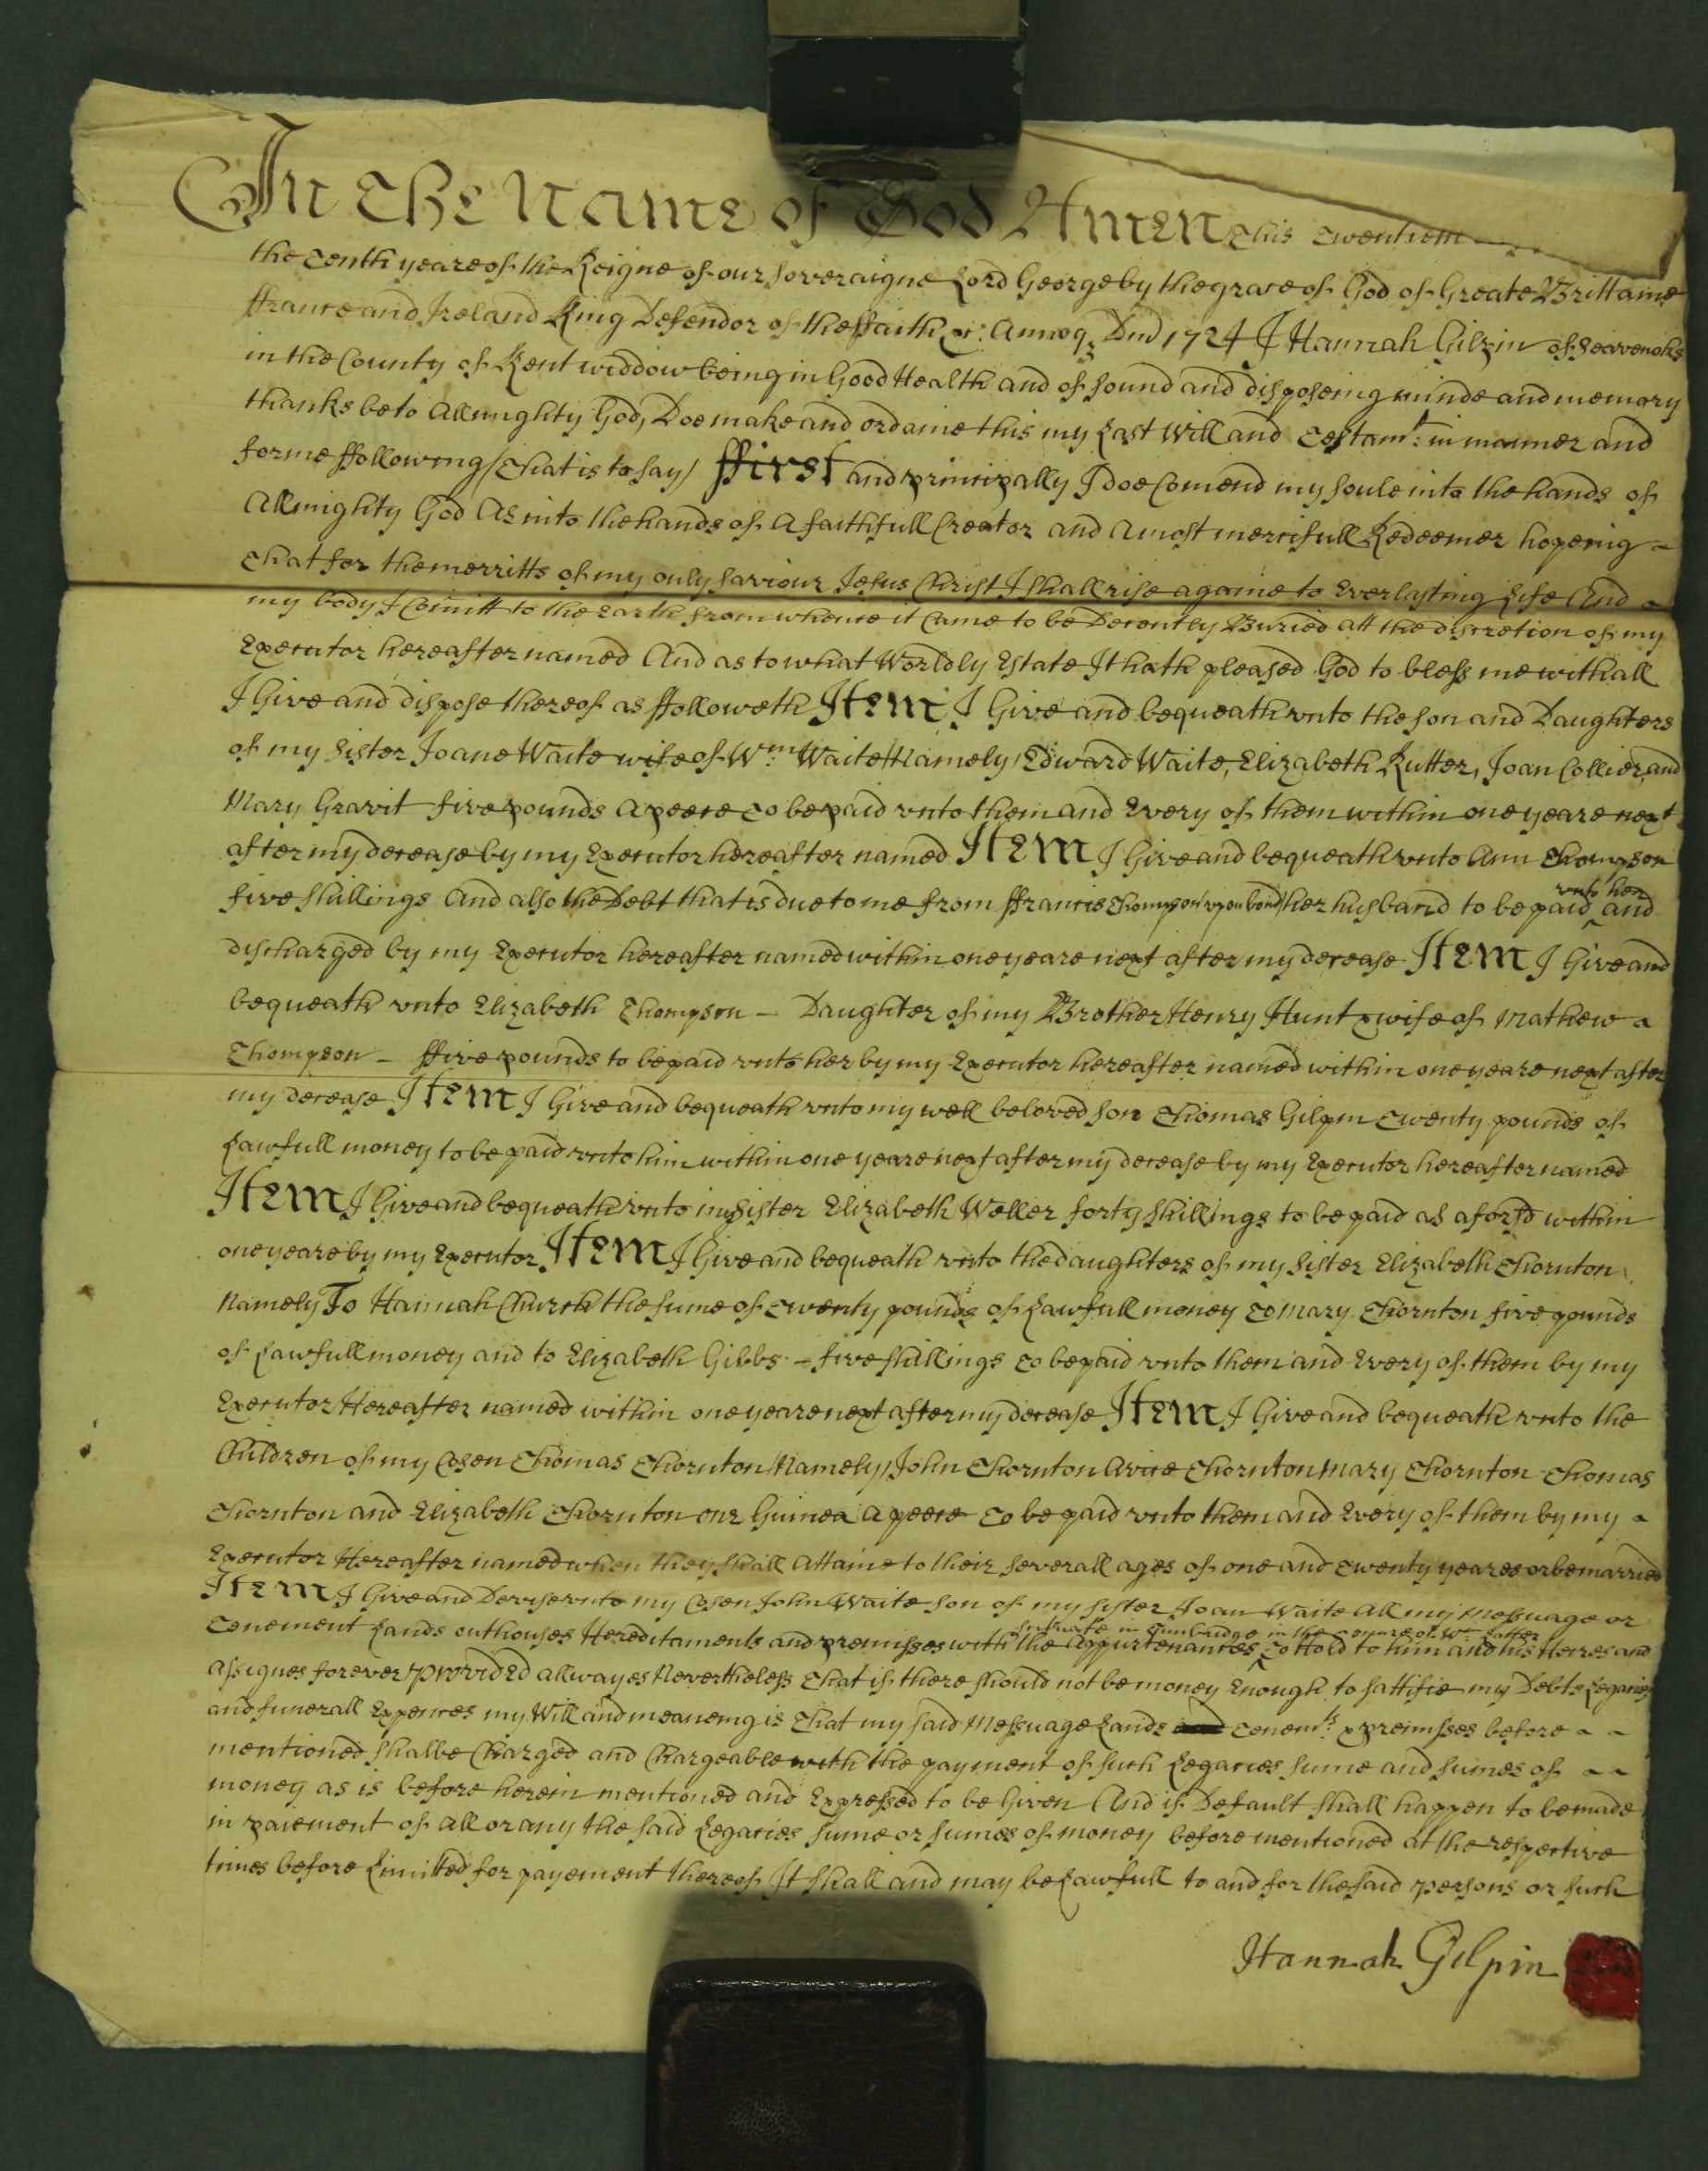 In The Name of God Amen This Twentieth
the Tenth yeare of the Reigne of our Soveraigne Lord George by the grace of God of Greate Brittaine
ffrance and Ireland King Defendor of the ffaith &c: Annoq₃ Dnd 1724 I Hannah Gilpin of Seavenoks
in the County of Kent widdow being in Good Health and of sound and disposeing minde and memory
thanks be to Allmighty God, Doe make and ordaine this my Last Will and Testamt: in manner and
forme ffollowing (That is to say) ffirst and principally I doe Comend my soule into the hands of
Allmighty God As into the hands of A faithfull Creator and A most mercifull Redeemer hopeing
That for the merritts of my only saviour Jesus Christ I shall rise againe to Everlasting Life And
my body I Comitt to the Earth from whence it Came to be Decently Buried att the discretion of my
Executor hereafter named And as to what Worldly Estate It hath pleased God to bless me withall
I Give and dispose thereof as ffolloweth Item I Give and bequeath unto the son and Daughters
of my Sister Joane Waite wife of Wm: Waite (Namely) Edward Waite, Elizabeth Rutter, Joan Collier, and
Mary Gravit five pounds A peece To be paid unto them and Every of them within one yeare next
after my decease by my Executor hereafter named Item I Give and bequeath unto Ann Thompson
five shillings And also the Debt that is due to me from ffrancis Thompson (upon bond) her husband to be paid unto her and
discharged by my Executor hereafter named within one yeare next after my decease Item I Give and
bequeath unto Elizabeth Thompson - Daughter of my Brother Henry Hunt & wife of Mathew
Thompson - ffive pounds to be paid unto her by my Executor hereafter named within one yeare next after
my decease Item I Give and bequeath unto my well beloved son Thomas Gilpin Twenty pounds of
Lawfull money to be paid unto him within one yeare next after my decease by my Executor hereafter named
Item I Give and bequeath unto my Sister Elizabeth Weller forty shillings to be paid as aforsd within
one yeare by my Executor Item I Give and bequeath unto the daughters of my Sister Elizabeth Thornton
Namely To Hannah Church the sume of Twenty pounds of Lawfull money To Mary Thornton five pounds
of Lawfull money and to Elizabeth Gibbs - five shillings To be paid unto them and Every of them by my
Executor Hereafter named within one yeare next after my decease Item I Give and bequeath unto the
Children of my Cosen Thomas Thornton (Namely) John Thornton Avice Thornton Mary Thornton Thomas
Thornton and Elizabeth Thornton one Guinea A peece To be paid unto them and Every of them by my
Executor Hereafter named when they shall Attaine to their severall ages of one and Twenty yeares or be married
Item I Give and Devise unto my Cosen John Waite son of my sister Joan Waite All my Messuage or
Tenement Lands outhouses Hereditaments and premisses with the Appurtenances situate in Tunbridge in the tenure of Wm To Hold to him and his Heires and
assignes forever Provided allwayes Nevertheless That if there should not be money Enough to sattifie my Debts Legacies
and funerall Expences my Will and meaneing is That my said Messuage Lands Tenemts: & premisses before - -
mentioned shalbe Charged and Chargeable with the payment of such Legacies sume and sumes of - -
money as is before herein mentioned and Expressed to be Given And if Default shall happen to be made
in paiement of all or any the said Legacies sume or sumes of money before mentioned at the respective
times before Limitted for payement thereof It shall and may be Lawfull to and for the said persons or such
Hannah Gilpin